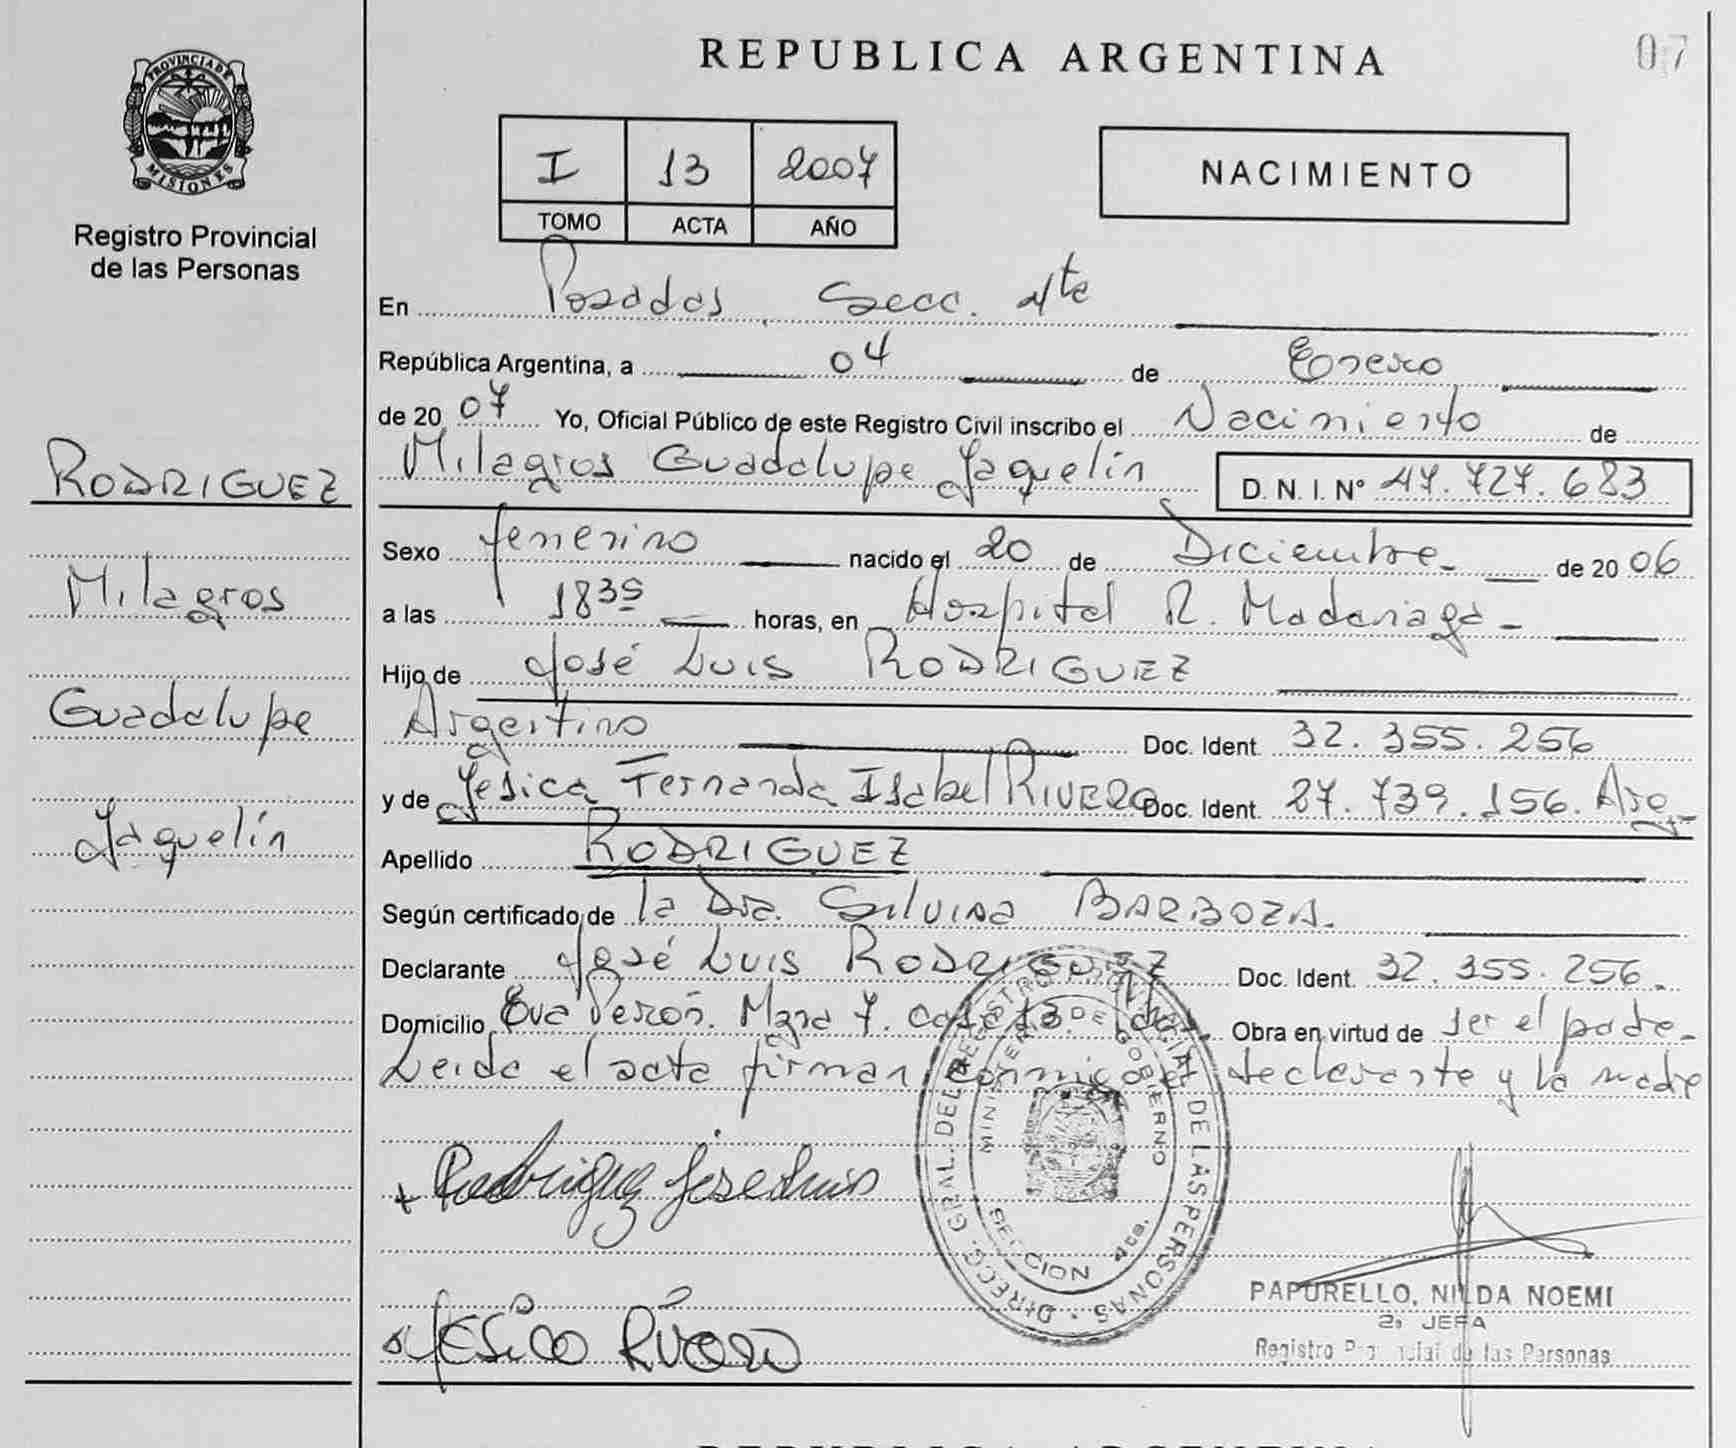 PROVINCIA DE
MISIONES
Registro Provincial
de las Personas
RODRIGUEZ
Milagros
Guadalupe
Jaquelín
REPUBLICA ARGENTINA
07
I 13 2007
TOMO ACTA AÑO
NACIMIENTO
En Posadas Secc. 4ta
República Argentina, a 04 de Enero
de 20 07 Yo, Oficial Público de este Registro Civil inscribo el Nacimiento de
Milagros Guadalupe Jaquelín D. N. I. Nº 47.727.683
Sexo femenino nacido el 20 de Diciembre de 20 06
a las 18 35 horas, en Hospital R. Madariaga
Hijo de José Luis RODRIGUEZ
Argentino Doc. Ident. 32.355.256
y de Jesica Fernanda Isabel RIVERO Doc. Ident. 27.739.156. Arg.
Apellido RODRIGUEZ
Según certificado de la Dra. Silvina BARBOZA.
Declarante José Luis RODRIGUEZ Doc. Ident. 32.355.256.
Domicilio Eva Perón. Mzna 7. casa 13. Obra en virtud de ser el padre
Leida el acta firman conmigo el declarante y la madre
Rodriguez Jose Luis
JESICA RIVERO
DIRECC. GRAL. DEL REGISTRO PROVINCIAL DE LAS PERSONAS
MINISTERIO DE GOBIERNO
SECCION 4ta.
PAPURELLO, NILDA NOEMI
2ª JEFA
Registro Provincial de las Personas
REPUBLICA ARGENTINA